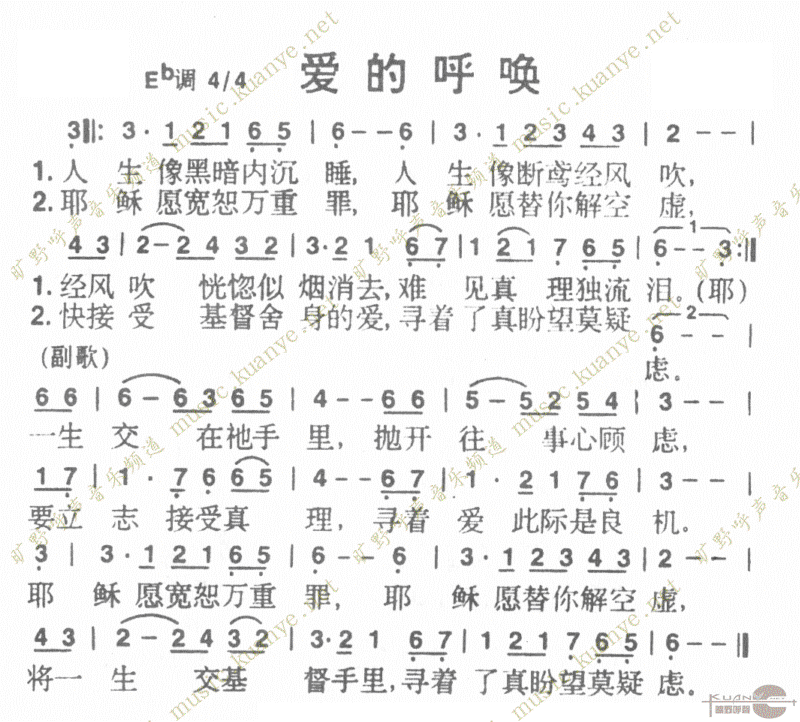 爱的呼唤
E♭调 4/4
3‖: 3· 1 2 1 6 5 | 6 - - 6 | 3· 1 2 3 4 3 | 2 - -
1.人 生 像黑暗内沉 睡, 人 生 像断鸢经风 吹,
2.耶 稣 愿宽恕万重 罪, 耶 稣 愿替你解空 虚,
4 3 | 2 - 2 4 3 2 | 3· 2 1 6 7 | 1 2 1 7 6 5 | 6 - - 3 :‖
1.经风 吹 恍惚似 烟消去,难 见真 理独流 泪。(耶)
2.快接 受 基督舍 身的爱,寻着 了真盼望莫疑
6 - -
(副歌) 虑。
6 6 | 6 - 6 3 6 5 | 4 - - 6 6 | 5 - 5 2 5 4 | 3 - -
一生 交 在祂手 里, 抛开 往 事心顾 虑,
1 7 | 1 · 7 6 6 5 | 4 - - 6 7 | 1 · 2 1 7 6 | 3 - -
要立 志 接受真 理, 寻着 爱 此际是良 机。
3 | 3 · 1 2 1 6 5 | 6 - - 6 | 3 · 1 2 3 4 3 | 2 - -
耶 稣 愿宽恕万重 罪, 耶 稣 愿替你解空 虚,
4 3 | 2 - 2 4 3 2 | 3· 2 1 6 7 | 1 2 1 7 6 5 | 6 - - ‖
将一 生 交基 督手里,寻着 了真盼望莫疑 虑。
旷野呼声音乐频道 music.kuanye.net
KUANYE.NET
旷野呼声